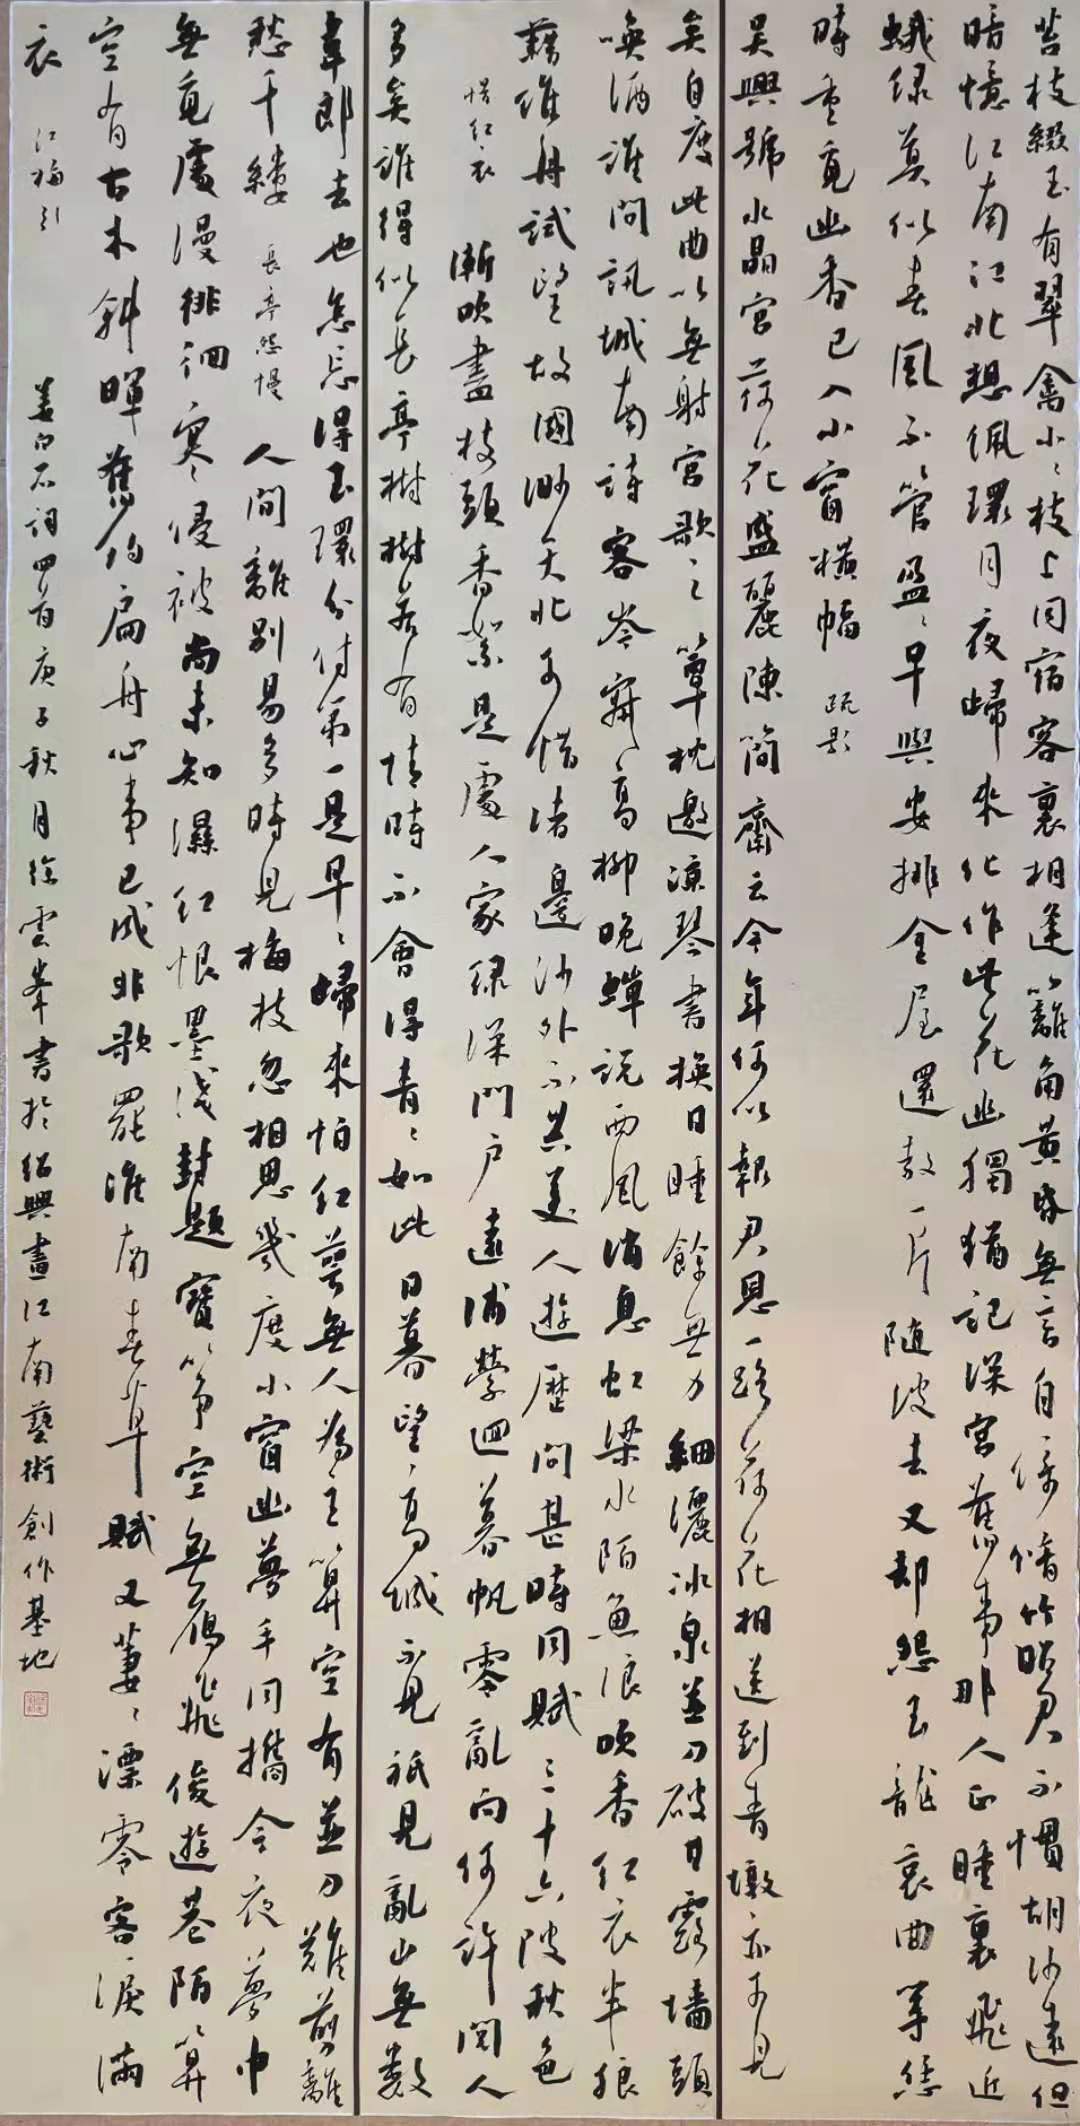 苔枝綴玉有翠禽小〻枝上同宿客裏相逢籬角黃昏無言自倚脩竹昭君不慣胡沙遠但
暗憶江南江北想佩環月夜歸來化作此花幽獨猶記深宮舊事那人正睡裏飛近
蛾綠莫似春風不管盈〻早與安排金屋還教一片隨波去又却怨玉龍哀曲等恁
時重覓幽香已入小窗橫幅 疏影
吳興號水晶宮荷花盛麗陳簡齋云今年何以報君恩一路荷花相送到青墩亦可見
矣自度此曲以無射宮歌之 簟枕邀涼琴書換日睡餘無力細灑冰泉並刀破甘碧牆頭
喚酒誰問訊城南詩客岑寂高柳晚蟬說西風消息虹梁水陌魚浪吹香紅衣半狼
藉維舟試望故國渺天北可惜渚邊沙外不共美人遊歷問甚時同賦三十六陂秋色
惜紅衣 漸吹盡枝頭香絮是處人家綠深門戶遠浦縈迴暮帆零亂向何許閱人
多矣誰得似長亭樹樹若有情時不會得青〻如此日暮望高城不見祇見亂山無數
韋郎去也怎忘得玉環分付第一是早〻歸來怕紅萼無人為主算空有並刀難剪離
愁千縷 長亭怨慢 人間離別易多時見梅枝忽相思幾度小窗幽夢手同攜今夜夢中
無覓處漫徘徊寒侵被尚未知濕紅恨墨淺封題寶箏空無雁飛俊遊巷陌算
空有古木斜暉舊約扁舟心事已成非歌罷淮南春草賦又萋〻漂零客淚滿
衣 江梅引 姜白石詞四首庚子秋月徐雲峯書於紹興畫江南藝術創作基地